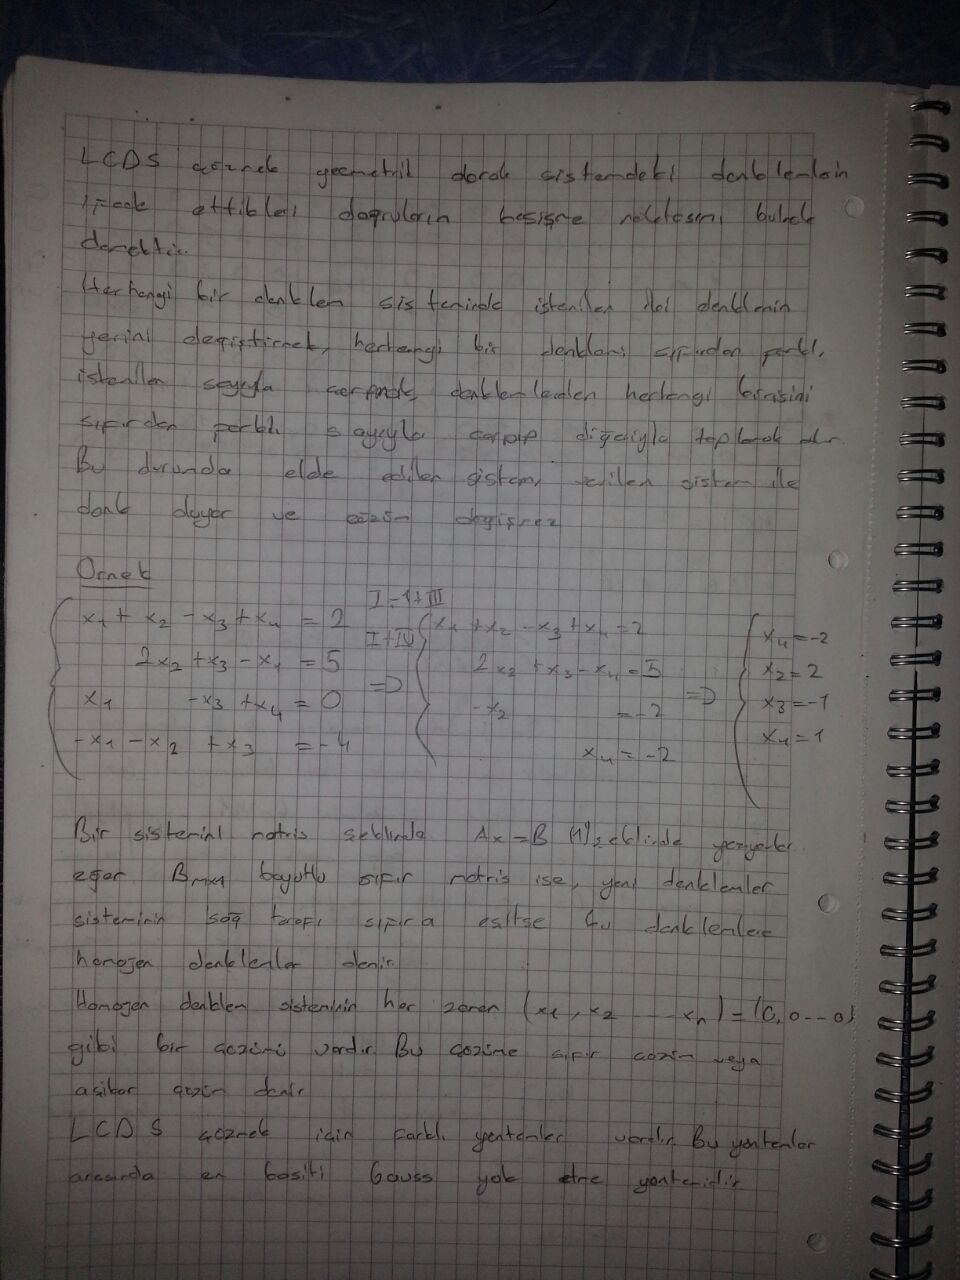 LCDS çözmek geometrik olarak sistemdeki denklemlerin
ifade ettikleri doğruların kesişme noktasını bulmak
demektir.
Herhangi bir denklem sisteminde istenilen iki denklemin
yerini değiştirmek, herhangi bir denklemi sıfırdan farklı,
istenilen sayıyla çarpmak, denklemlerden herhangi birisini
sıfırdan farklı sayıyla çarpıp diğeriyle toplamak olur
Bu durumda elde edilen sistem, verilen sistem ile
denk duyar ve çözüm değişmez
Örnek
x1 + x2 - x3 + x4 = 2 I-1+III x1 + x2 - x3 + x4 = 2 x4 = -2
2x2 + x3 - x4 = 5 I+IV => 2x2 + x3 - x4 = 5 => x2 = 2
x1 - x3 + x4 = 0 -x2 = -2 x3 = -1
-x1 - x2 + x3 = -4 x4 = -2 x4 = 1
Bir sistemini matris şeklinde Ax = B (1) şeklinde yazıyorlar.
eğer Bmx1 boyutlu sıfır matris ise, yani denklemler
sisteminin sağ tarafı sıfıra eşitse bu denklemlere
homojen denklemler denir.
Homojen denklem sisteminin her zaman (x1, x2 --- xn) = (0, 0 -- 0)
gibi bir çözümü vardır. Bu çözüme sıfır çözüm veya
aşikar çözüm denir.
LCDS çözmek için farklı yöntemler vardır. Bu yöntemler
arasında en basiti Gauss yok etme yöntemidir.